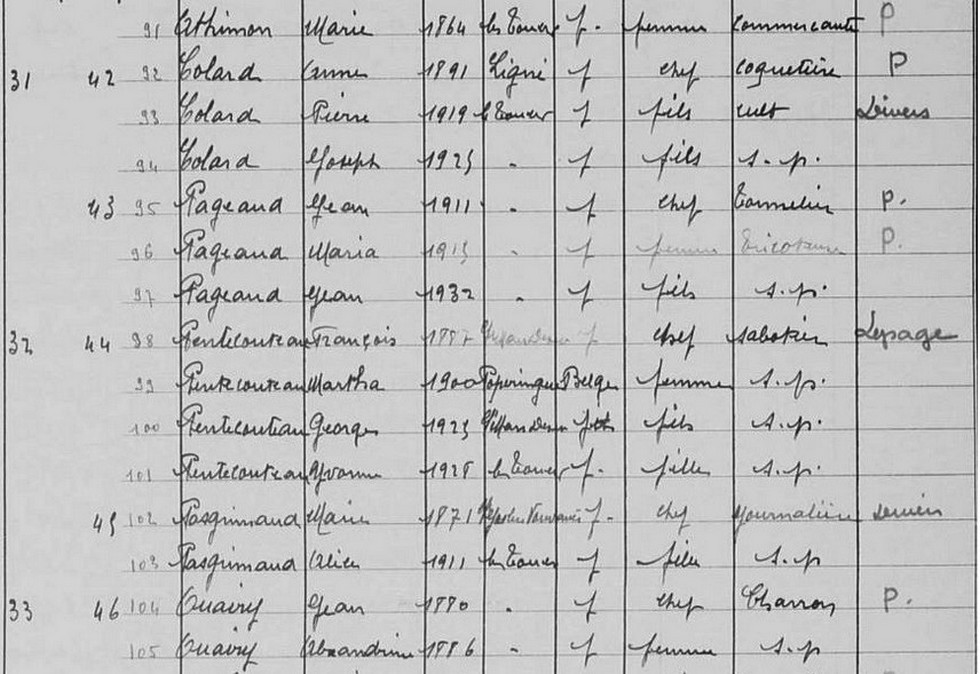 91 Athimon Marie 1864 les Touches f. femme commerçante P
31 42 92 Colard Anne 1891 Ligné f chef coquetière P
93 Colard Pierre 1919 f fils cult Divers
94 Colard Joseph 1925 - f fils s.p.
43 95 Pageaud Jean 1911 - f chef P.
96 Pageaud Maria 1913 - f femme Tricoteuse P.
97 Pageaud Jean 1932 - f fils s.p.
32 44 98 Pentecouteau François 1887 f chef sabotier Lepage
99 Pentecouteau Martha 1900 Poperinge Belge femme s.p.
100 Pentecouteau Georges 1925 fils s.p.
101 Pentecouteau Yvonne 1928 les Touches f. fille s.p.
45 102 Pasgrimaud Marie 1871 f. chef journalière
103 Pasgrimaud Alice 1911 les Touches f fille s.p
33 46 104 Jean 1880 - f chef Charron P.
105 Alexandrine 1886 - f femme s.p